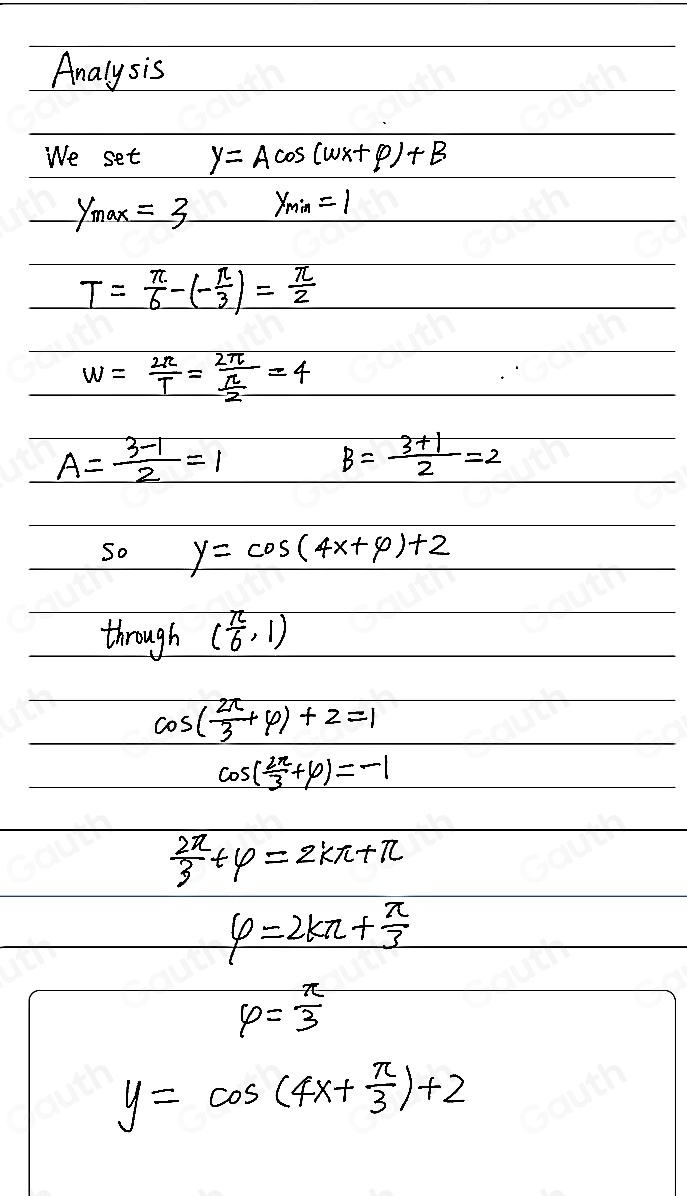 Analysis
We set y = A cos (wx + φ) + B
ymax = 3 ymin = 1
T = π/6 - (-π/3) = π/2
w = 2π/T = 2π/(π/2) = 4
A = (3-1)/2 = 1 B = (3+1)/2 = 2
so y = cos (4x + φ) + 2
through (π/6, 1)
cos (2π/3 + φ) + 2 = 1
cos (2π/3 + φ) = -1
2π/3 + φ = 2kπ + π
φ = 2kπ + π/3
φ = π/3
y = cos (4x + π/3) + 2